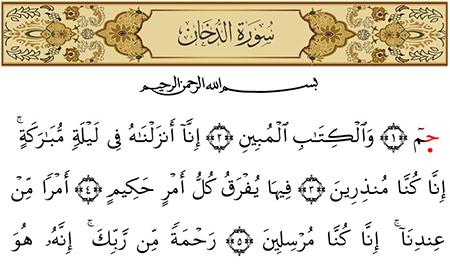 سُورَةُ الدُّخَانِ
بسم الله الرحمن الرحيم
جمٓ ﴿١﴾ وَٱلْكِتَٰبِ ٱلْمُبِينِ ﴿٢﴾ إِنَّآ أَنزَلْنَٰهُ فِى لَيْلَةٍ مُّبَٰرَكَةٍ ۚ
إِنَّا كُنَّا مُنذِرِينَ ﴿٣﴾ فِيهَا يُفْرَقُ كُلُّ أَمْرٍ حَكِيمٍ ﴿٤﴾ أَمْرًا مِّنْ
عِندِنَآ ۚ إِنَّا كُنَّا مُرْسِلِينَ ﴿٥﴾ رَحْمَةً مِّن رَّبِّكَ ۚ إِنَّهُۥ هُوَ